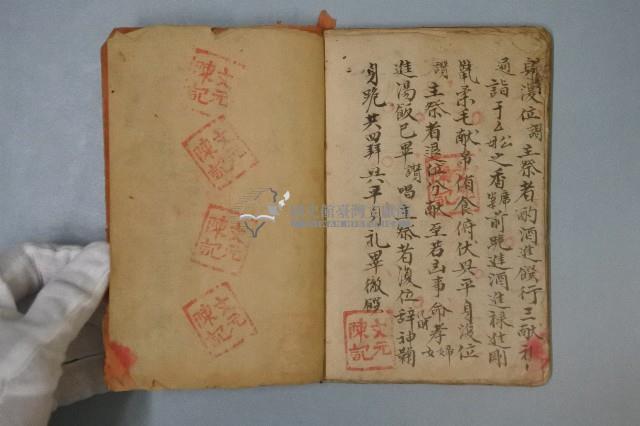 身復位謂主祭者酌酒進饌行三献礼
通詣于之松之香案前跪進酒進祿進剛
鬣柔毛献帛侑食俯伏兴平身復位
謂主祭者退位分献至若凶事命孝婦女
進湯飯已畢謂唱主祭者復位辞神鞠
身跪共四拜兴平身礼畢徹饌
文元
陳記
文元
陳記
文元
陳記
文元
陳記
文元
陳記